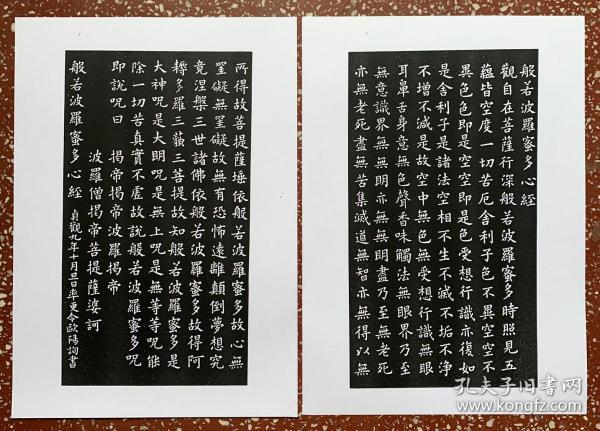 般若波羅蜜多心經
觀自在菩薩行深般若波羅蜜多時照見五
蘊皆空度一切苦厄舍利子色不異空空不
異色色即是空空即是色受想行識亦復如
是舍利子是諸法空相不生不滅不垢不淨
不增不減是故空中無色無受想行識無眼
耳鼻舌身意無色聲香味觸法無眼界乃至
無意識界無無明亦無無明盡乃至無老死
亦無老死盡無苦集滅道無智亦無得以無
所得故菩提薩埵依般若波羅蜜多故心無
罣礙無罣礙故無有恐怖遠離顛倒夢想究
竟涅槃三世諸佛依般若波羅蜜多故得阿
耨多羅三藐三菩提故知般若波羅蜜多是
大神呪是大明呪是無上呪是無等等呪能
除一切苦真實不虛故說般若波羅蜜多呪
即說呪曰 揭帝揭帝波羅揭帝
波羅僧揭帝菩提薩婆訶
般若波羅蜜多心經 貞觀九年十月旦日率更令歐陽詢書
孔夫子旧书网
www.kongfz.com